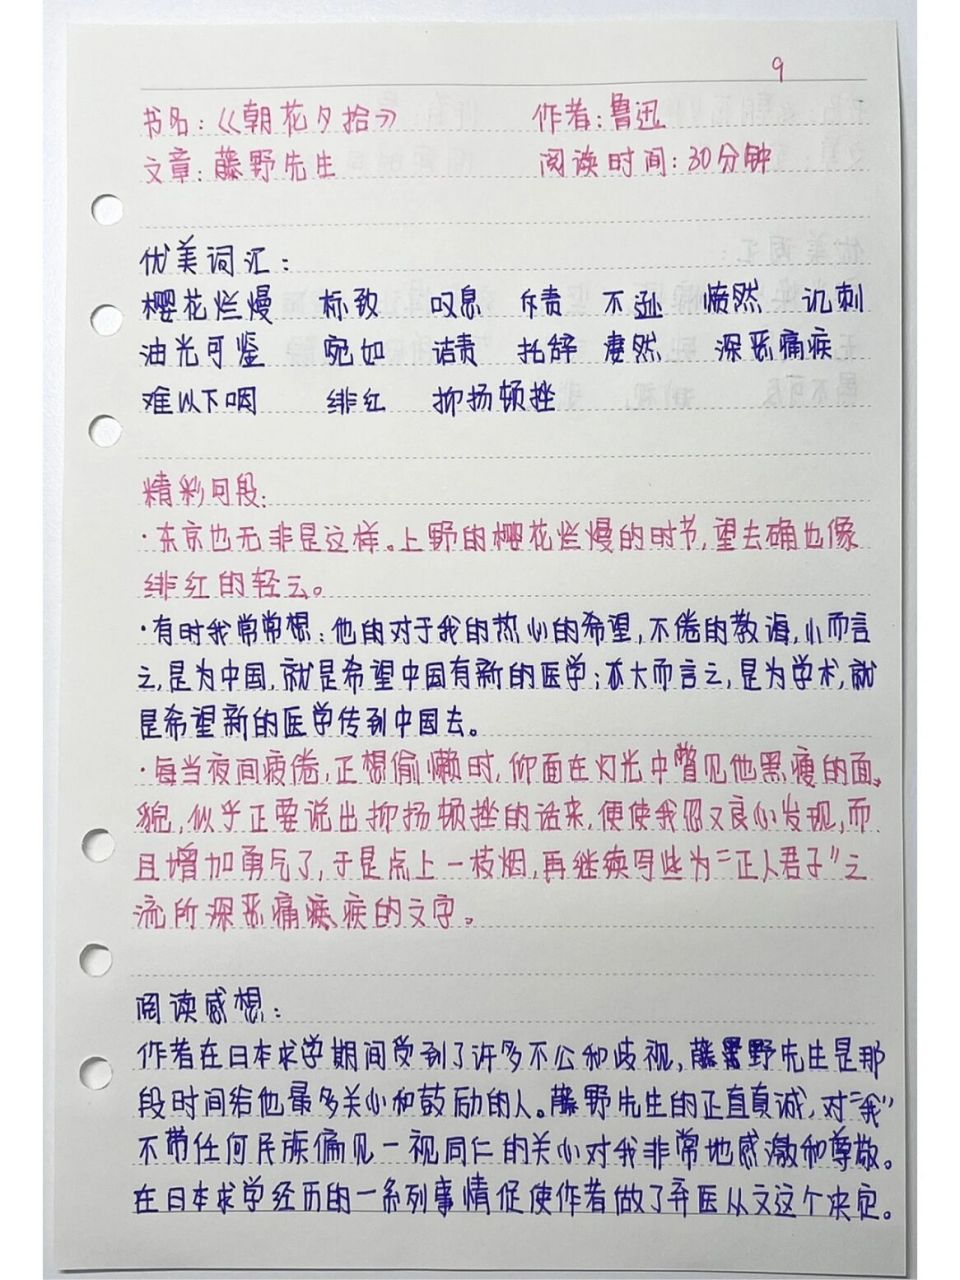 9
书名：《朝花夕拾》 作者：鲁迅
文章：藤野先生 阅读时间：30分钟
优美词汇：
樱花烂熳 标致 叹息 斥责 不逊 愤然 讥刺
油光可鉴 宛如 诘责 托辞 凄然 深恶痛疾
难以下咽 绯红 抑扬顿挫
精彩句段：
·东京也无非是这样。上野的樱花烂熳的时节，望去确也像
绯红的轻云。
·有时我常常想：他的对于我的热心的希望，不倦的教诲，小而言
之，是为中国，就是希望中国有新的医学；大而言之，是为学术，就
是希望新的医学传到中国去。
·每当夜间疲倦，正想偷懒时，仰面在灯光中瞥见他黑瘦的面
貌，似乎正要说出抑扬顿挫的话来，便使我忽又良心发现，而
且增加勇气了，于是点上一枝烟，再继续写些为“正人君子”之
流所深恶痛疾的文字。
阅读感想：
作者在日本求学期间受到了许多不公和歧视，藤野先生是那
段时间给他最多关心和鼓励的人。藤野先生的正直真诚，对“我”
不带任何民族偏见一视同仁的关心对我非常地感激和尊敬。
在日本求学经历的一系列事情促使作者做了弃医从文这个决定。